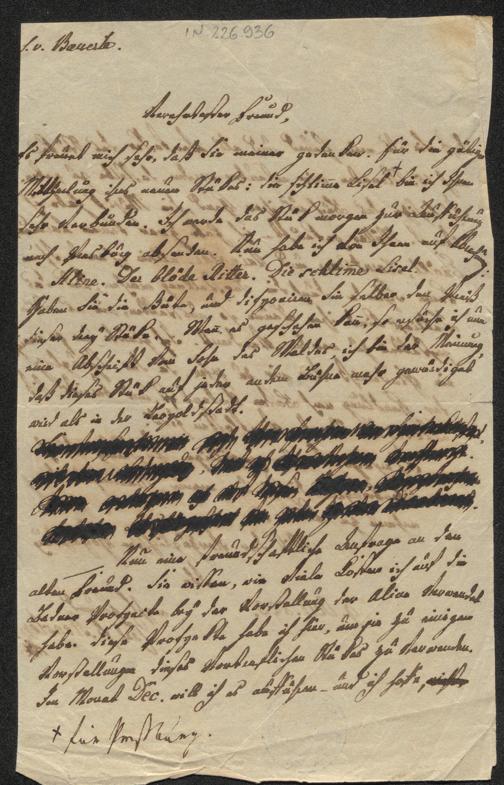 I.N. 226.936
S. v. Bäuerle.
Verehrtester Freund,
Es freuet mich sehr, daß Sie meiner gedenken. Für die gütige
Mittheilung ihres neuen Stükes: die schlime Lisel + bin ich Ihnen
sehr verbunden. Ich werde das Stük morgen zur Aufführung
nach Presburg absenden. Nun habe ich von Ihnen auf
Aline. Der blöde Ritter. Die schlime Lisel.
Haben Sie die Güte, und disponiren Sie selber den Preiß
dieser drey Stüke. Wenn es geschehen kan, so ersuche ich um
eine Abschrift vom Sohn des Waldes, ich bin der Meinung
daß dieses Stük auf jeder andern Bühne mehr gewürdiget
wird als in der Leopoldstadt.
Nun eine freundschaftliche Anfrage an den
alten Freund. Sie wissen, wie viele Kosten ich auf die
Badner Prospecte bey der Vorstellung der Aline verwendet
habe. Diese Prospekte habe ich hier, um sie zu einigen
Vorstellungen dieses vortrefflichen Stükes zu verwenden.
Im Monat Dec. will ich es aufführen – und ich hoffe,
+ für Presburg.